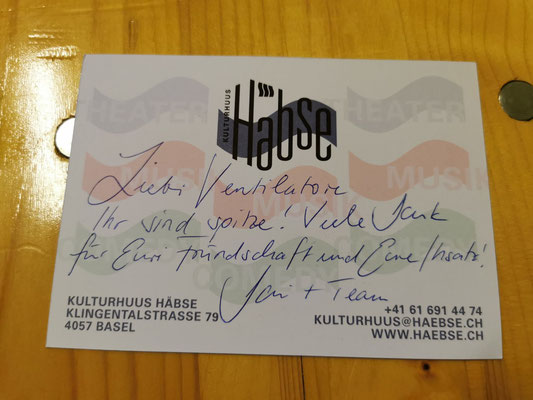 KULTURHUUS
Häbse
THEATER
THEATER
MUSIK
MUSIK
COMEDY
COMEDY
Liebi Ventilatore
Ihr sind spitze! Viele Dank
für Euri Fründschaft und Eure Ihsatz!
+ Team
KULTURHUUS HÄBSE
KLINGENTALSTRASSE 79
4057 BASEL
+41 61 691 44 74
KULTURHUUS@HAEBSE.CH
WWW.HAEBSE.CH